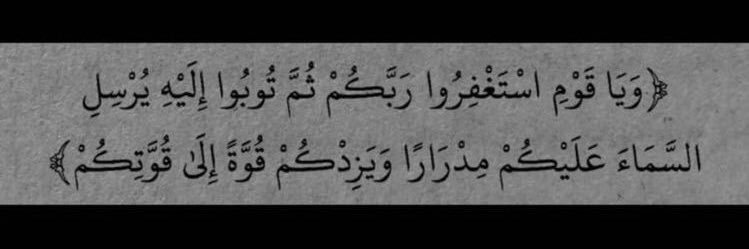 ﴿وَيَا قَوْمِ اسْتَغْفِرُوا رَبَّكُمْ ثُمَّ تُوبُوا إِلَيْهِ يُرْسِلِ
السَّمَاءَ عَلَيْكُمْ مِدْرَارًا وَيَزِدْكُمْ قُوَّةً إِلَىٰ قُوَّتِكُمْ﴾